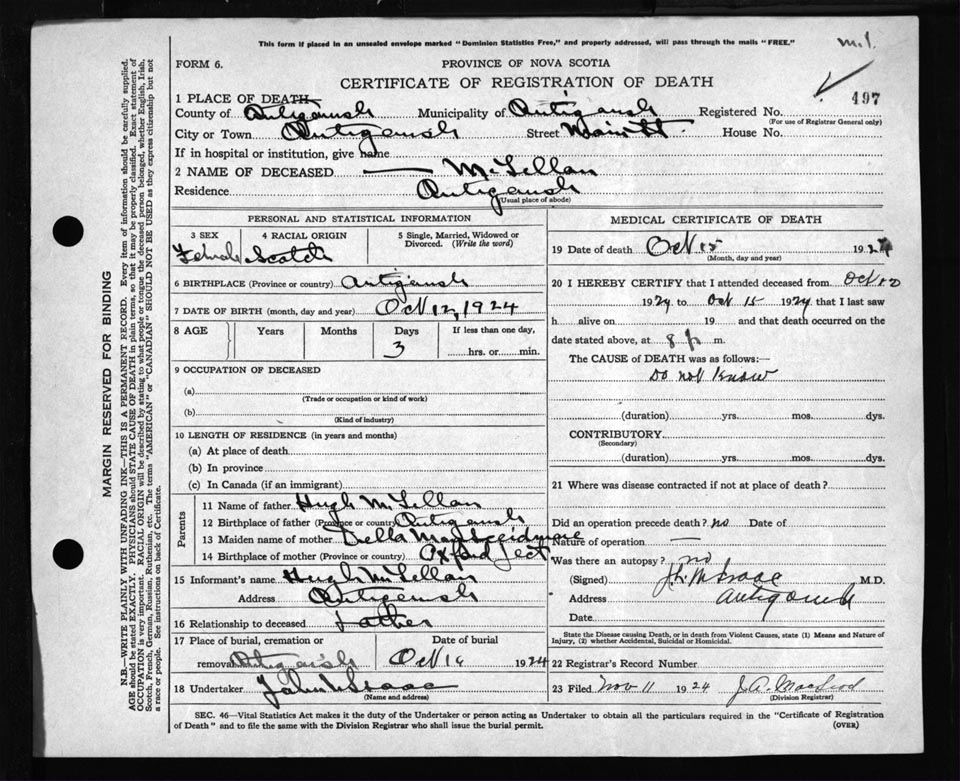 This form if placed in an unsealed envelope marked "Dominion Statistics Free," and properly addressed, will pass through the mails "FREE."
m.l.
FORM 6.
PROVINCE OF NOVA SCOTIA
CERTIFICATE OF REGISTRATION OF DEATH
497
1 PLACE OF DEATH
County of Antigonish Municipality of Antigonish Registered No.
(For use of Registrar General only)
City or Town Antigonish Street Main St. House No.
If in hospital or institution, give name
2 NAME OF DECEASED — McLellan
Residence Antigonish
(Usual place of abode)
PERSONAL AND STATISTICAL INFORMATION
3 SEX 4 RACIAL ORIGIN 5 Single, Married, Widowed or Divorced. (Write the word)
Female Scotch
6 BIRTHPLACE (Province or country) Antigonish
7 DATE OF BIRTH (month, day and year) Oct 12, 1924
8 AGE Years Months Days If less than one day,
3 hrs. or min.
9 OCCUPATION OF DECEASED
(a)
(Trade or occupation or kind of work)
(b)
(Kind of industry)
10 LENGTH OF RESIDENCE (in years and months)
(a) At place of death
(b) In province
(c) In Canada (if an immigrant)
Parents
11 Name of father Hugh McLellan
12 Birthplace of father (Province or country) Antigonish
13 Maiden name of mother
14 Birthplace of mother (Province or country) Oxford Jct
15 Informant's name Hugh McLellan
Address Antigonish
16 Relationship to deceased Father
17 Place of burial, cremation or removal Antigonish
Date of burial
Oct 16 1924
18 Undertaker John McIsaac
(Name and address)
MEDICAL CERTIFICATE OF DEATH
19 Date of death Oct 15 1924
(Month, day and year)
20 I HEREBY CERTIFY that I attended deceased from Oct 12
1924 to Oct 15 1924 that I last saw
h alive on 19 and that death occurred on
date stated above, at 8 p m.
The CAUSE of DEATH was as follows:—
Do not know
(duration) yrs. mos. dys.
CONTRIBUTORY
(Secondary)
(duration) yrs. mos. dys.
21 Where was disease contracted if not at place of death?
Did an operation precede death? no Date of
Nature of operation —
Was there an autopsy? no
(Signed) McIsaac M.D.
Address Antigonish
Date
State the Disease causing Death, or in death from Violent Causes, state (1) Means and Nature of Injury, (2) whether Accidental, Suicidal or Homicidal.
22 Registrar's Record Number
23 Filed Nov 11 1924 J.A. MacLeod
(Division Registrar)
SEC. 46—Vital Statistics Act makes it the duty of the Undertaker or person acting as Undertaker to obtain all the particulars required in the "Certificate of Registration
of Death" and to file the same with the Division Registrar who shall issue the burial permit. (OVER)
MARGIN RESERVED FOR BINDING
N.B.—WRITE PLAINLY WITH UNFADING INK—THIS IS A PERMANENT RECORD. Every item of information should be carefully supplied.
AGE should be stated EXACTLY. PHYSICIANS should STATE CAUSE OF DEATH in plain terms, so that it may be properly classified. Exact statement of
OCCUPATION is very important. RACIAL ORIGIN will be described by stating to what people or tongue the deceased person belonged, whether English, Irish,
Scotch, French, German, Russian, Ruthenian, etc. The terms "AMERICAN" or "CANADIAN" SHOULD NOT BE USED as they express citizenship but not
a race or people. See instructions on back of Certificate.